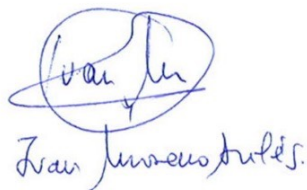 Ivan M
Ivan Moreno Avilés.